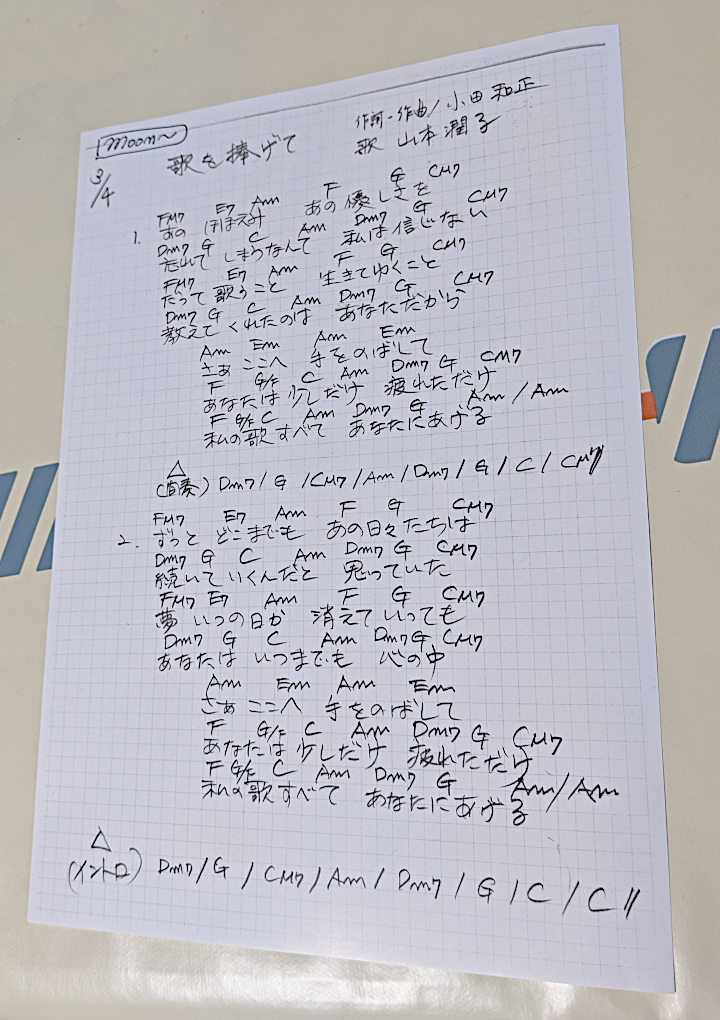 moon〜
作詞・作曲/小田和正
歌を捧げて
歌 山本潤子
3/4
FM7 E7 Am F G CM7
1. あの ほほえみ あの優しさを
Dm7 G C Am Dm7 G CM7
忘れてしまうなんて 私は信じない
FM7 E7 Am F G CM7
だって歌うこと 生きてゆくこと
Dm7 G C Am Dm7 G CM7
教えてくれたのは あなただから
Am Em Am Em
さあ ここへ 手をのばして
F G/F C Am Dm7 G CM7
あなたは少しだけ 疲れただけ
F G/F C Am Dm7 G Am/Am
私の歌すべて あなたにあげる
△
(間奏) Dm7/G/CM7/Am/Dm7/G/C/CM7//
FM7 E7 Am F G CM7
2. ずっと どこまでも あの日々たちは
Dm7 G C Am Dm7 G CM7
続いていくんだと 思っていた
FM7 E7 Am F G CM7
夢 いつの日か 消えていっても
Dm7 G C Am Dm7 G CM7
あなたは いつまでも 心の中
Am Em Am Em
さあ ここへ 手をのばして
F G/F C Am Dm7 G CM7
あなたは少しだけ 疲れただけ
F G/F C Am Dm7 G Am/Am
私の歌すべて あなたにあげる
△
(イントロ) Dm7/G/CM7/Am/Dm7/G/C/C//